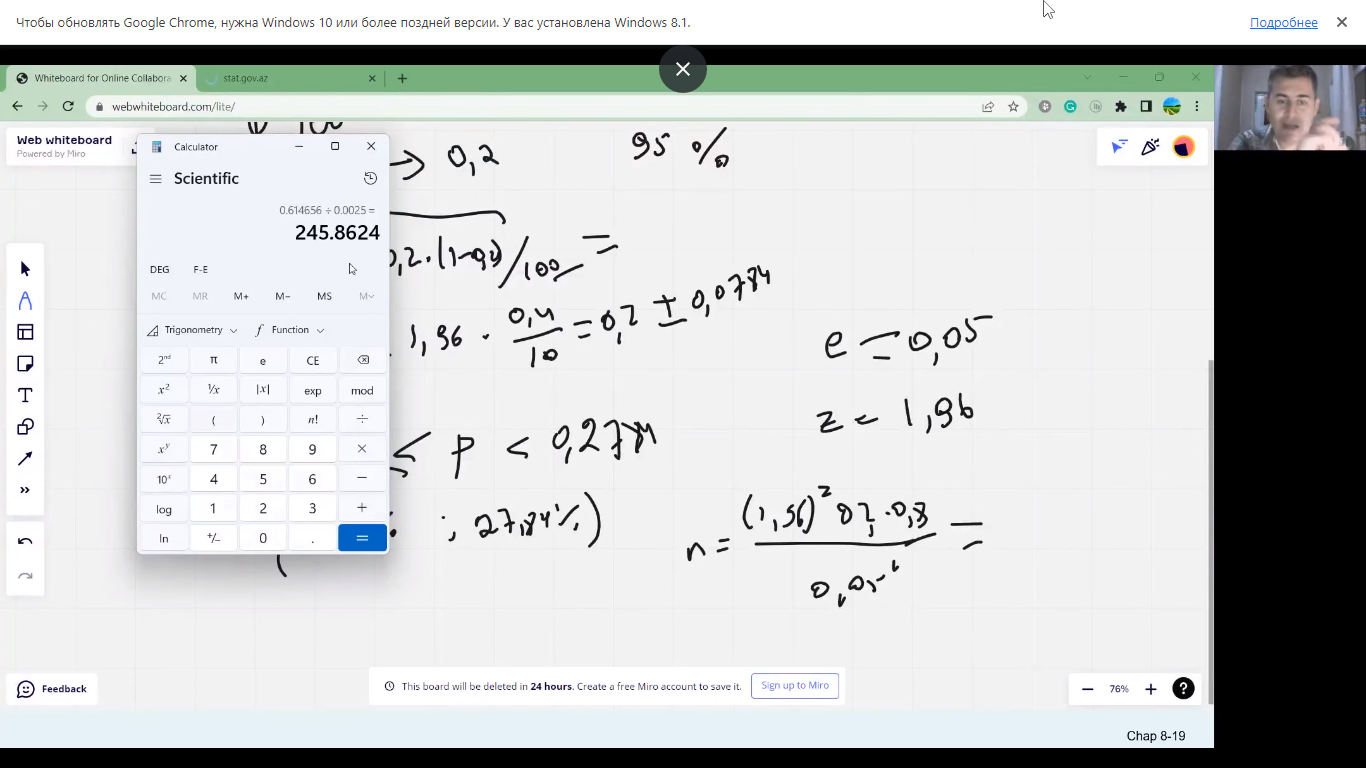 Чтобы обновлять Google Chrome, нужна Windows 10 или более поздней версии. У вас установлена Windows 8.1.
Подробнее
Whiteboard for Online Collabora
stat.gov.az
webwhiteboard.com/lite/
Web whiteboard
Powered by Miro
100
→ 0,2
95 %
Calculator
Scientific
0.614656 ÷ 0.0025 =
245.8624
DEG F-E
MC MR M+ M− MS M˅
Trigonometry Function
2ⁿᵈ π e CE
x² ¹/x |x| exp mod
²√x ( ) n! ÷
xʸ 7 8 9 ×
10ˣ 4 5 6 −
log 1 2 3 +
ln +/− 0 . =
0,2 · (1-0,2)/100 =
1,96 · 0,4/10 = 0,2 ± 0,0784
e = 0,05
z = 1,96
≤ p < 0,2784
; 27,84%)
n = (1,96)² 0,2 · 0,8 =
0,05²
Feedback
This board will be deleted in 24 hours. Create a free Miro account to save it.
Sign up to Miro
− 76% + ?
Chap 8-19